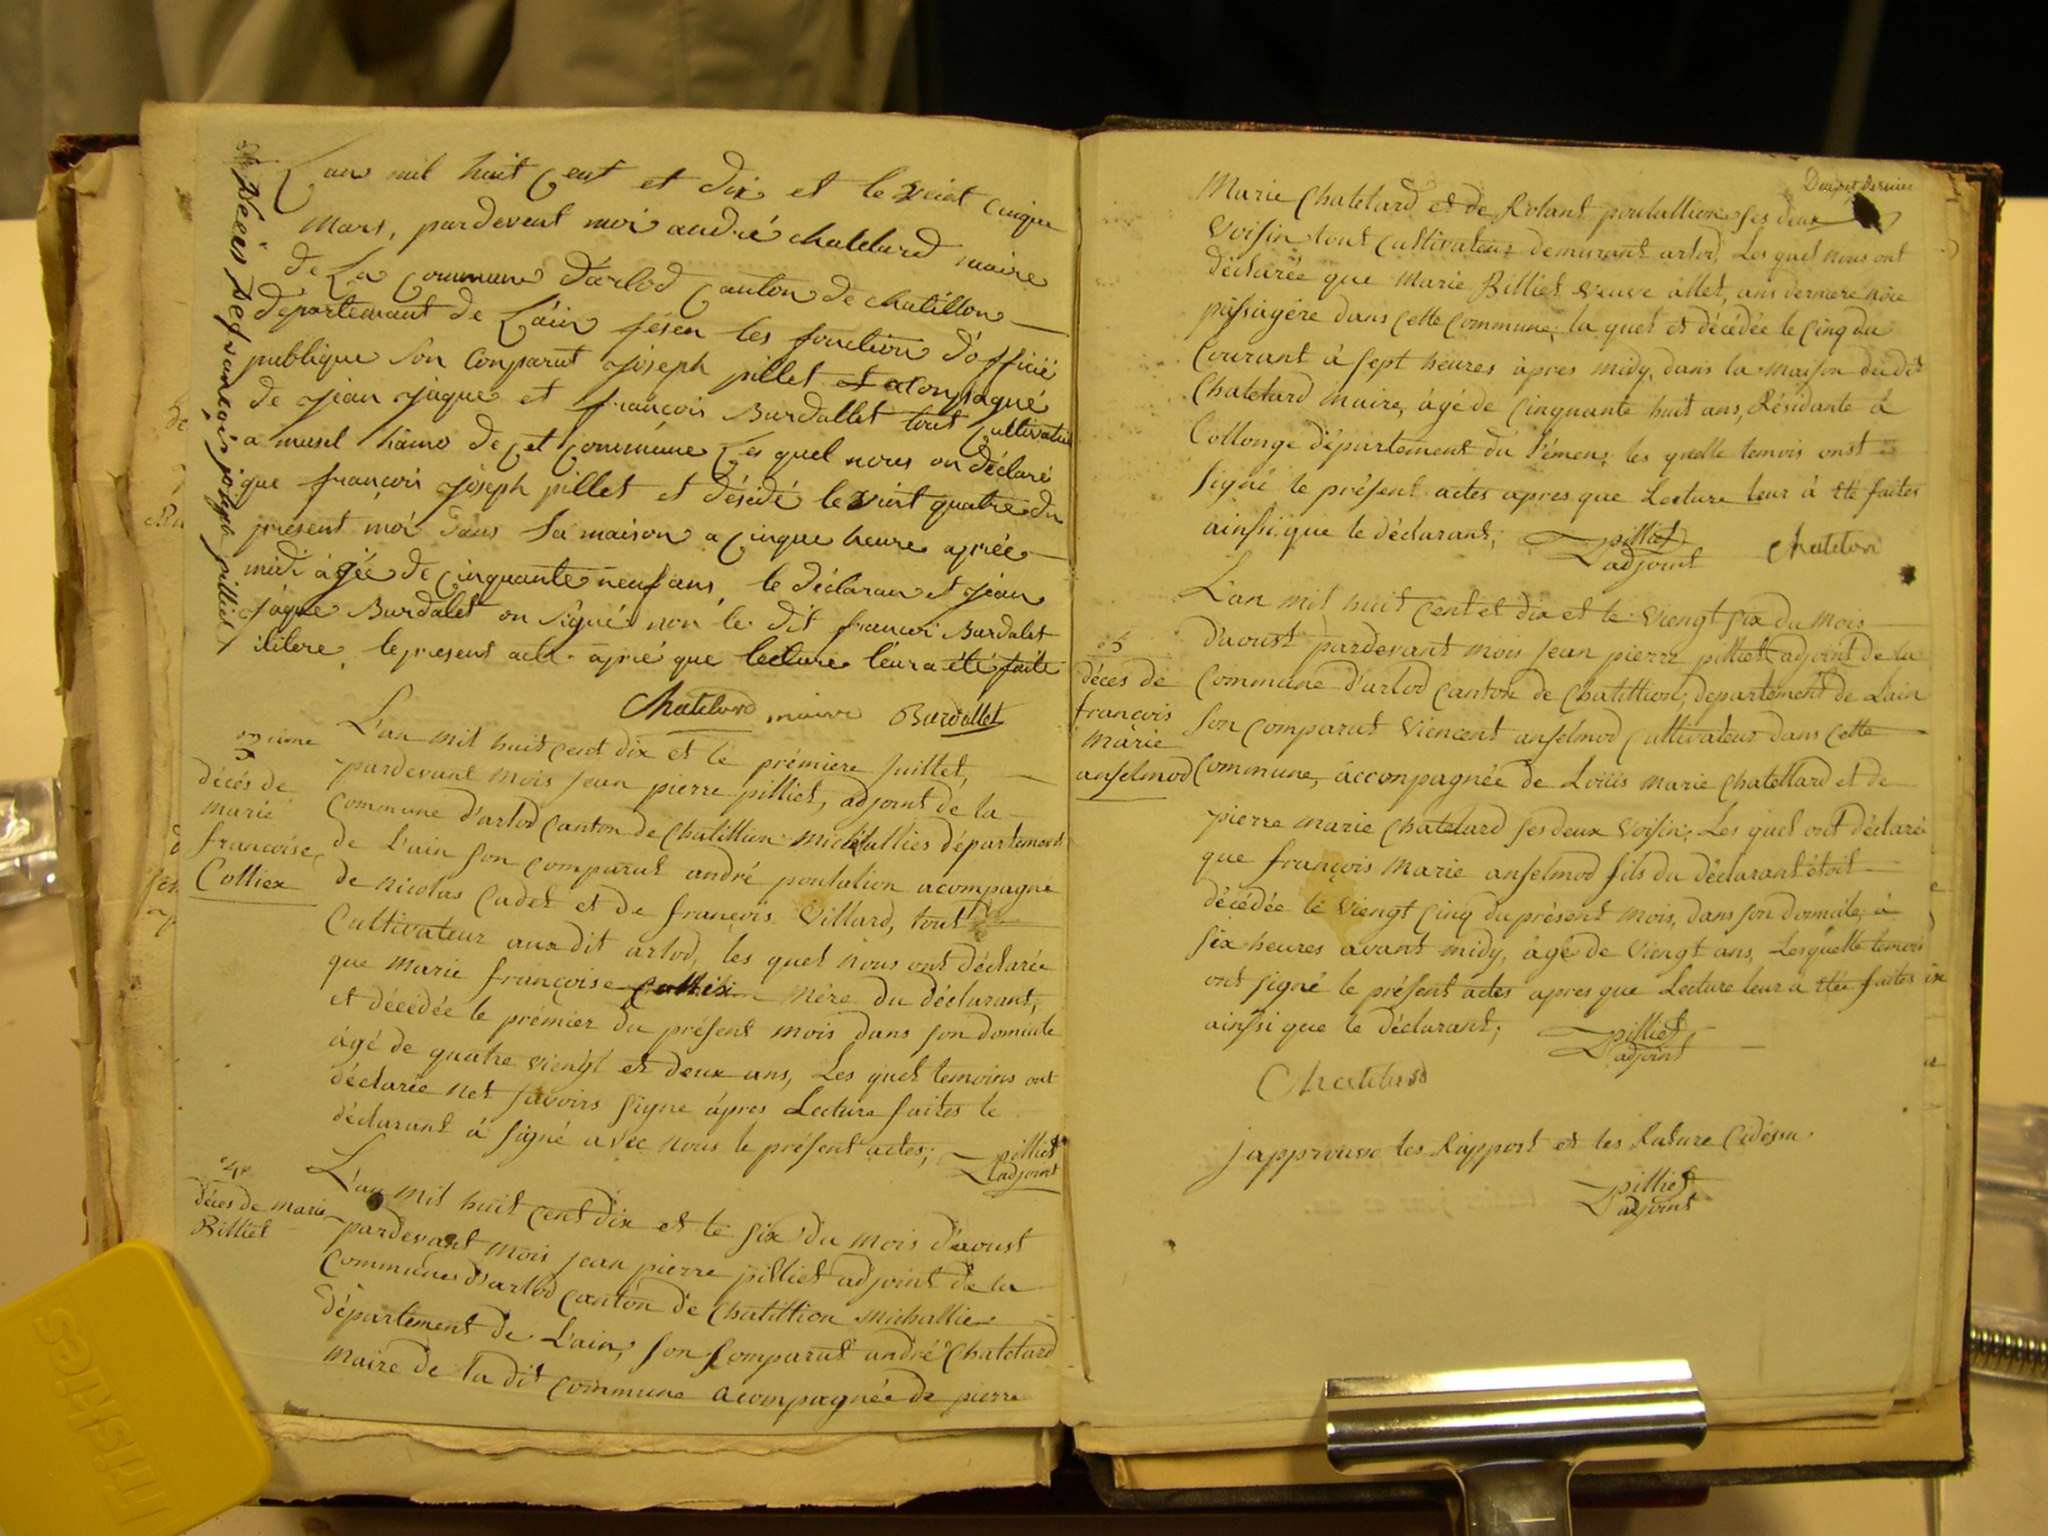 Décès de françois joseph pilliet
L'an mil huit Cent et dix et le vint cinque
Mars, pardevent moi andré chatelard maire
de La Commune d'arlod Canton de chatillon
département de L'ain fesen les fonction d'officié
publique son Conparut joseph pillet et acompagné
de jean jaque et françois Burdallet tout Cultivateur
a musel hamo de Cet Commune Les quel nous on déclaré
que françois joseph pillet et désidé le vint quatre du
présent moi dans sa maison a Cinque heure aprée
midi àgée de Cinquante neuf ans, le déclaran et jean
jaque Burdalet on signé non le dit françoi Burdalet
ilitere, le present acte aprié que lecture leur a été faite
Chatelard maire Burdallet
3eime
décés de
marie
françoise
Colliex
L'an mil huit cent dix et le prémiere Juillet,
pardevant mois jean pierre pilliet, adjoint de la
Commune d'arlod Canton de Chatillion Michallies département
de L'ain son comparut andré pontalion acompagné
de nicolas Cadet et de françois Villard, tout
Cultivateur audit arlod, les quel nous ont déclarée
que marie françoise Collix mère du déclarant,
et décédée le prémier du présent mois dans son domicile
âgé de quatre viengt et deux ans, Les quel temoins ont
déclarée net savoirs signe âpres Lecture faites le
déclarant à signé avec nous le présent actes;
pilliet
adjoint
4e
déces de marie
Billiet
L'an mil huit cent dix et le six du mois d'aoust
pardevant mois jean pierre pilliet adjoint de la
Commune d'arlod canton de Chatillion Michallie
département de L'ain, son Comparut andré Chatelard
Maire de la dit commune acompagnée de pierre
Deux et dernier
Marie Chatelard et de Rolant pontallion ses deux
Voisin tout Cultivateur demurant arlod, Les quel nous ont
déclarée que Marie Billiet veuve allet, ans derniere
passagére dans cette Commune, la quel et décédée le Cinq du
Courant à sept heures àpres midy, dans la maison du dit
Chatelard maire, âgé de Cinquante huit ans, Résidante à
Collonge département du l'émen, les quelle temois onst
signé le présent actes apres que Lecture leur à été faites
ainsi que le déclarant;
pilliet
adjoint
Chatelard
5
déces de
françois
marie
anselmod
L'an mil huit Cent et dix et le viengt six du mois
d'aoust pardevant mois jean pierre pilliet adjoint de la
Commune d'arlod Canton de Chatillion, département de L'ain
son comparut Viencent anselmod Cultivateur dans cette
Commune, àccompagnée de Loüis marie Chatellard et de
pierre marie Chatelard ses deux Voisin, Les quel ont déclaré
que françois Marie anselmod fils du déclarant étoit
décédée le Viengt Cinq du présent mois, dans son domicile, à
six heures avant midy, âgé de Viengt ans, Lesquelle temois
ont signé le présent actes apres que Lecture leur a été faites
ainsi que le déclarant;
pilliet
adjoint
Chatelard
japprouve les Rapport et les Rature Cidéssu
pilliet
adjoint